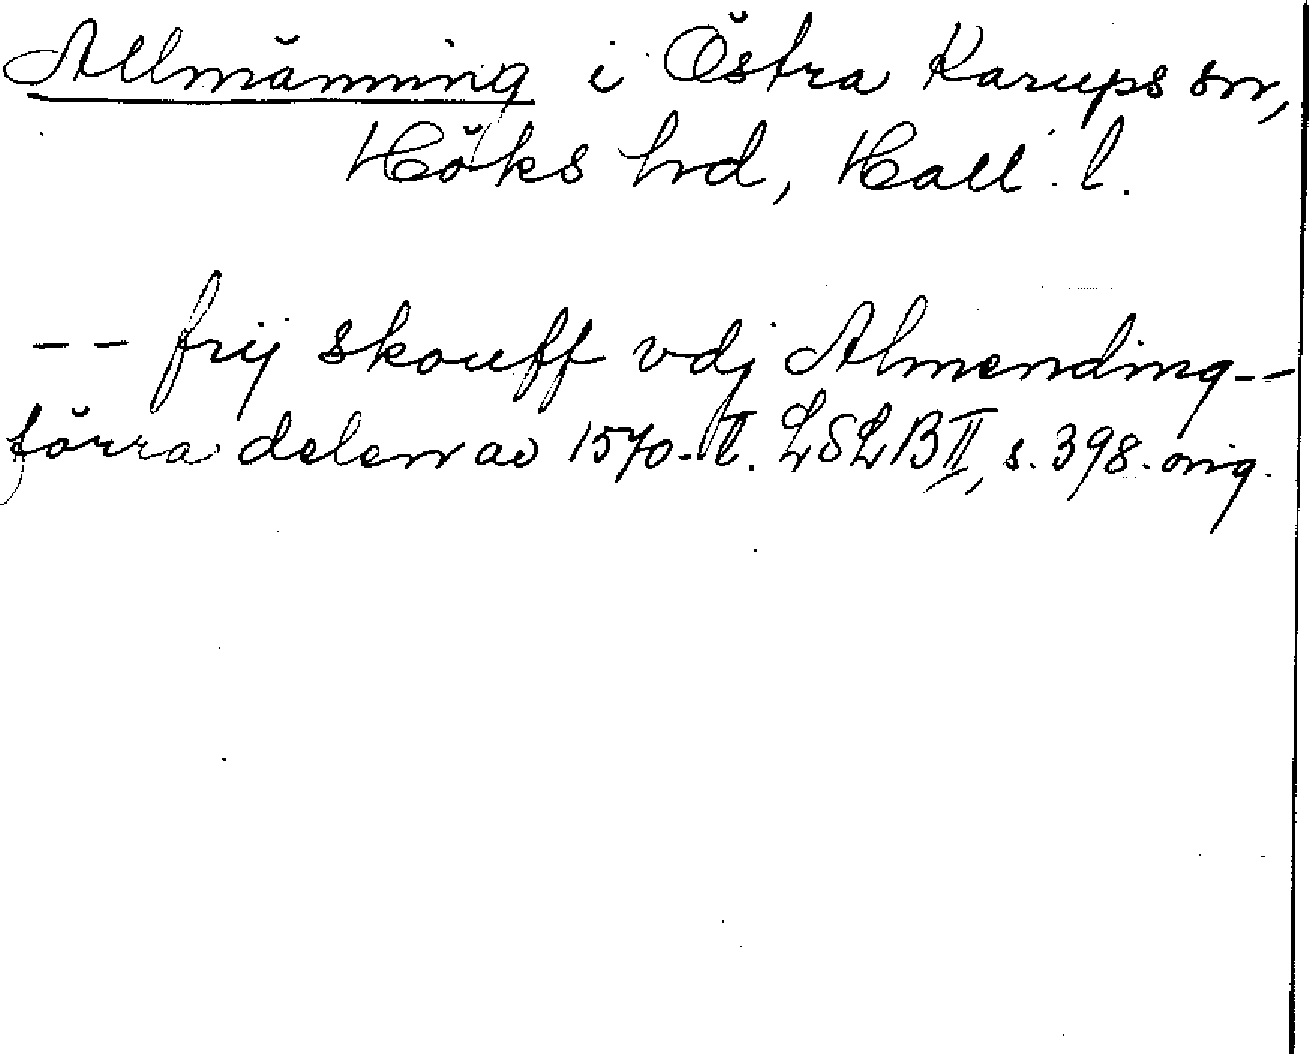 Allmänning i Östra Karups sn,
Höks hd, Hall. l.
-- frij skouff vdj Almending--
förra delen av 1570-t. LSLB II, s. 398. orig.